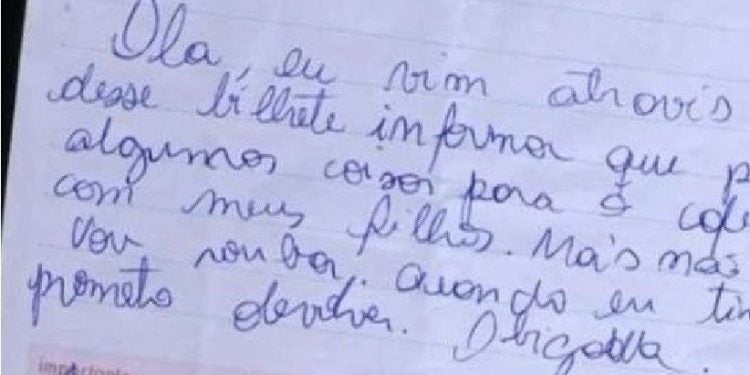 Ola, eu vim atravis
desse bilhete informar que p
algumas coisas para o cafe
com meus filhos. Mais mas
vou roubar. Quando eu tin
prometo devolver. Obigada.
importante